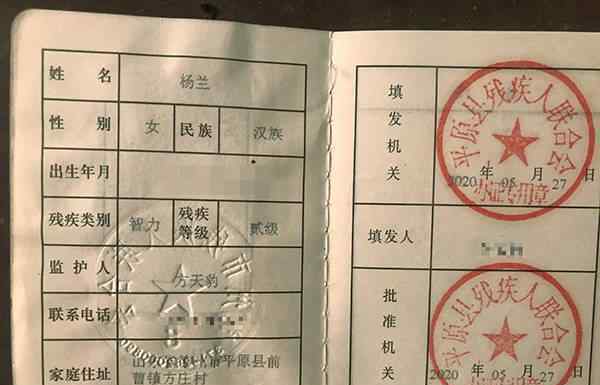 姓 名 杨兰
性 别 女 民族 汉族
出生年月
残疾类别 智力 残疾等级 贰级
监 护 人 方天豹
联系电话
家庭住址 市平原县前
曹镇方庄村
填发机关
平原县残疾人联合会
2020 年 05 月 27 日
办证专用章
填发人
批准机关
平原县残疾人联合会
2020 年 05 月 27 日